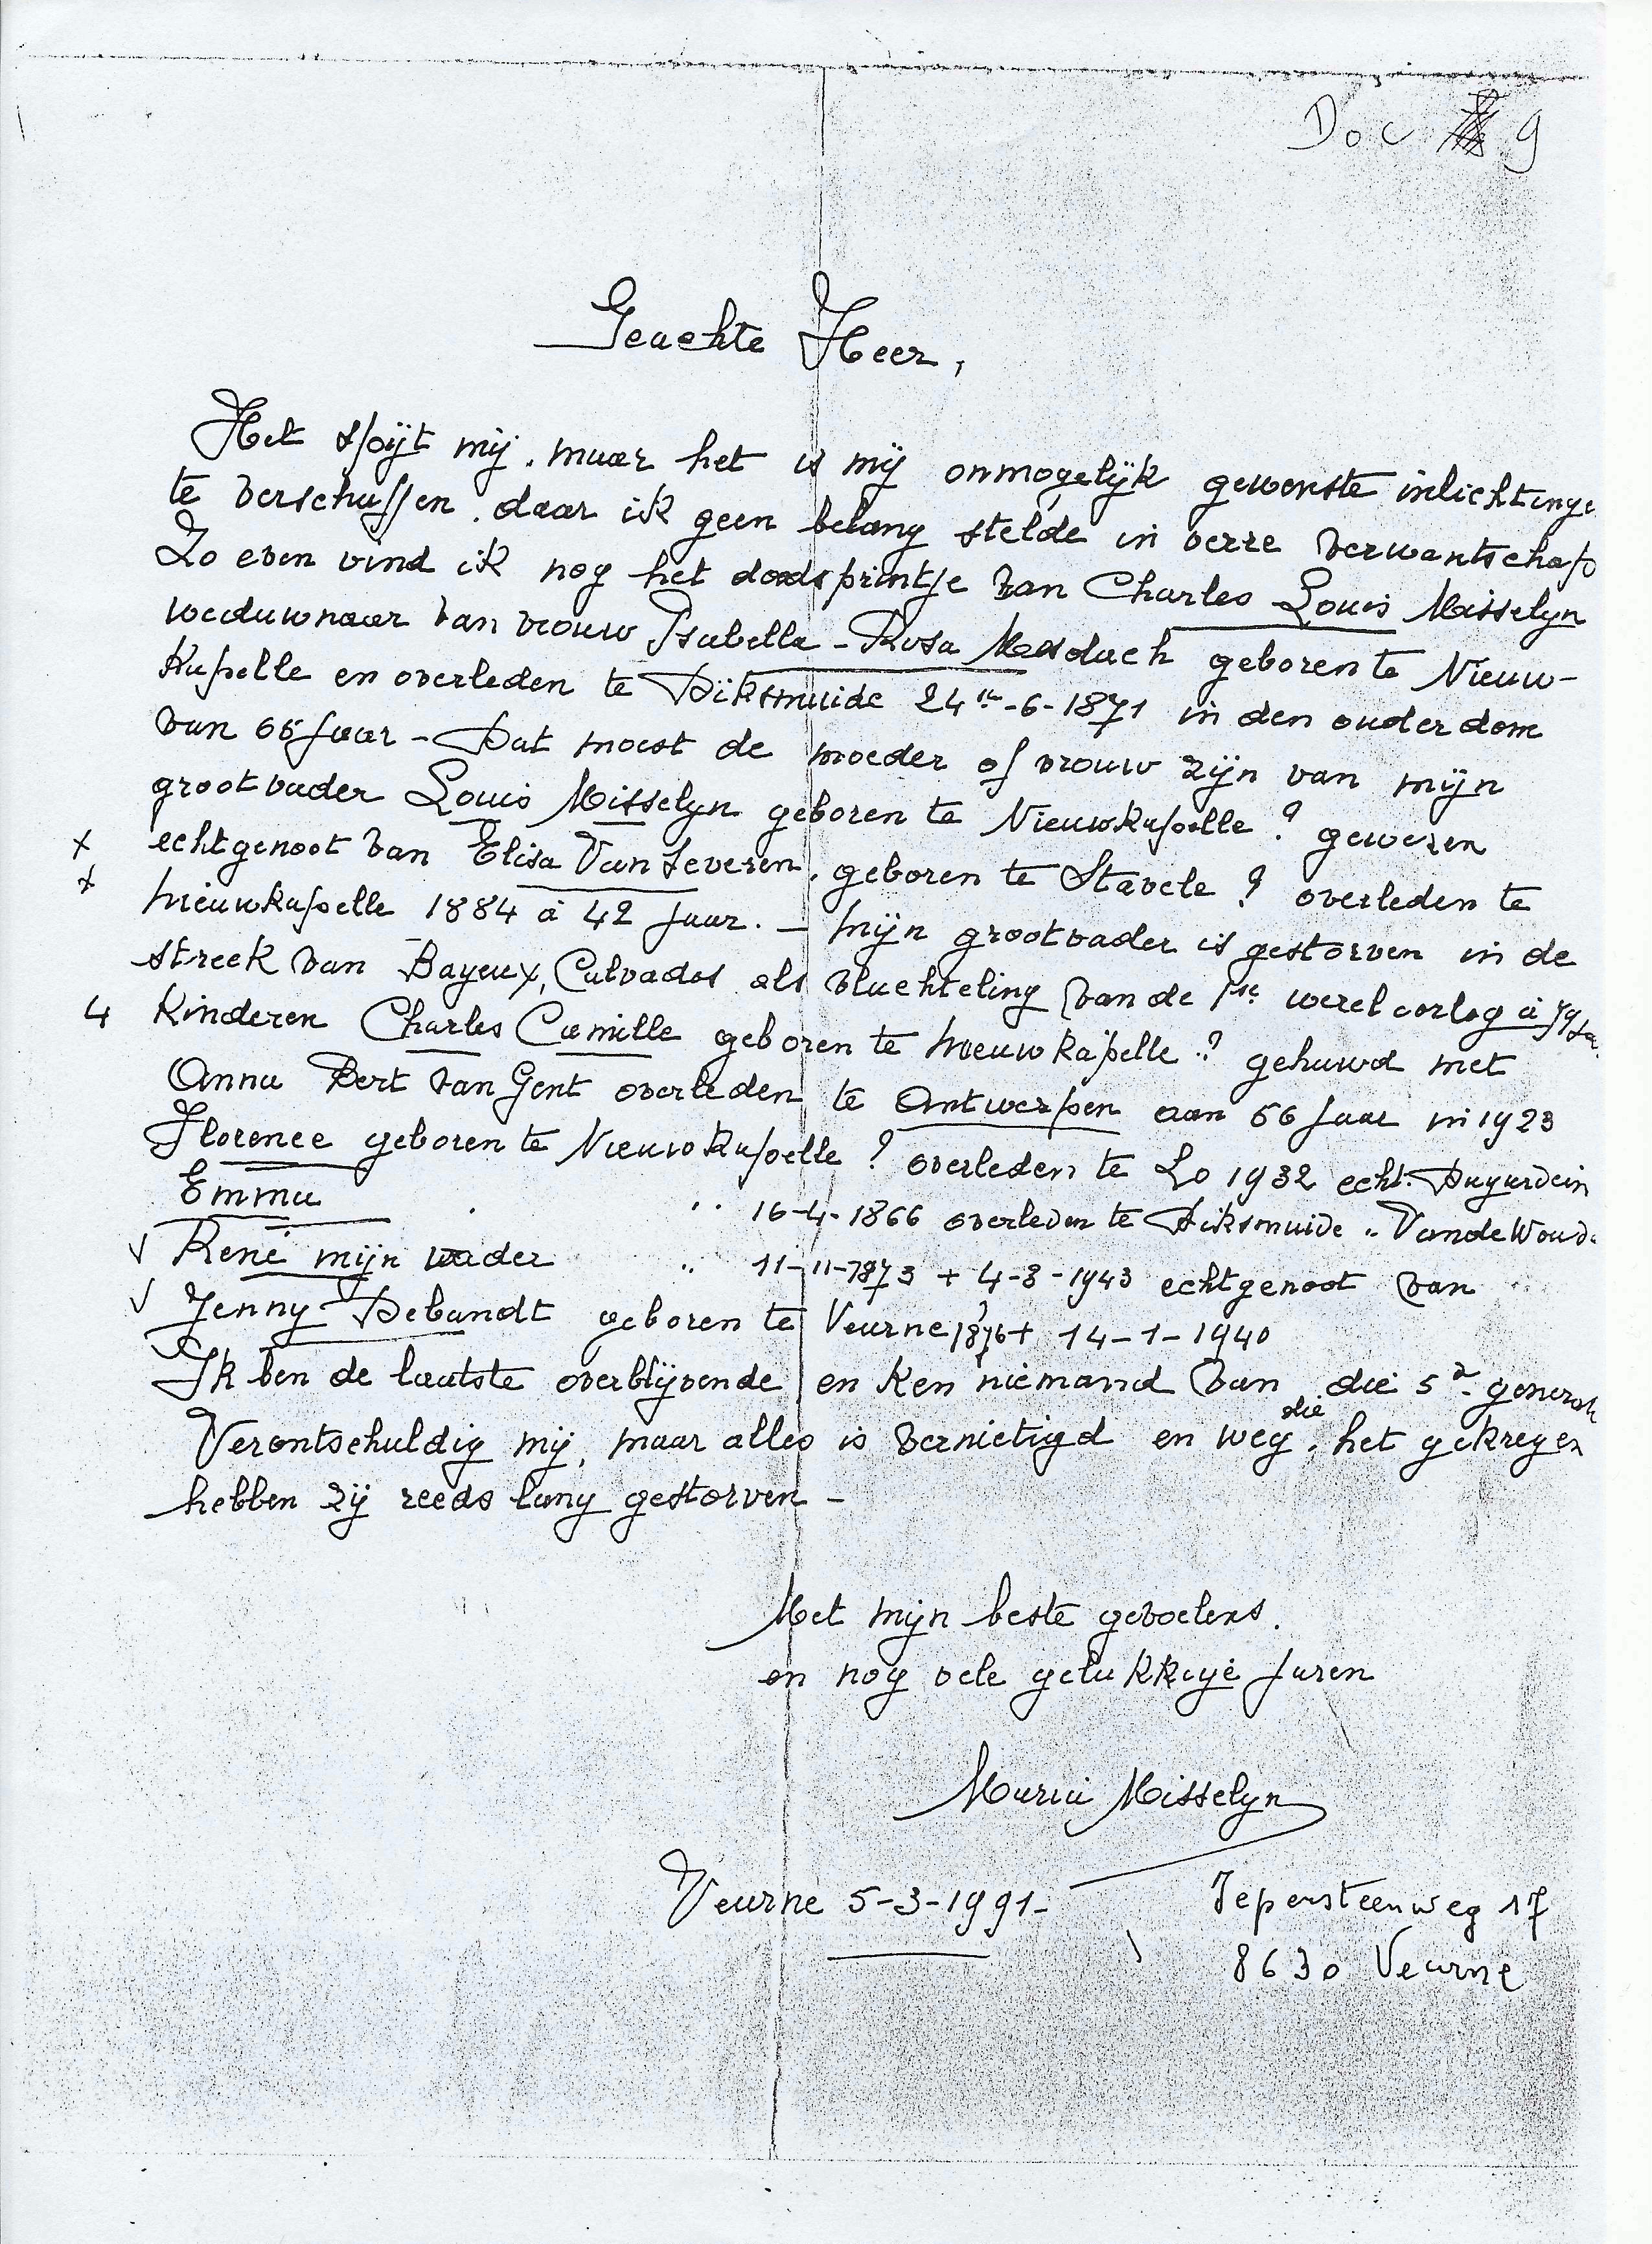 Doc 9
Geachte Heer,
Het spijt mij, maar het is mij onmogelijk gewenste inlichtinge
te verschaffen, daar ik geen belang stelde in verre verwantschap
Zo even vind ik nog het doodsprintje van Charles Louis Misselyn
weduwnaar van vrouw Isabella - Rosa Mesdach geboren te Nieuw-
Kapelle en overleden te Diksmuide 24ste-6-1871 in den ouderdom
van 65 jaar - Dat moest de moeder of vrouw zijn van mijn
grootvader Louis Misselyn geboren te Nieuwkapelle ? gewezen
x echtgenoot van Elisa Van Severen, geboren te Stavele ? overleden te
x Nieuwkapelle 1884 à 42 jaar. - Mijn grootvader is gestorven in de
streek van Bayeux, Calvados als vluchteling van de 1ste wereloorlog à
4 Kinderen Charles Camille geboren te Nieuwkapelle ? gehuwd met
Anna Bert van Gent overleden te Antwerpen aan 56 jaar in 1923
Florence geboren te Nieuwkapelle ? overleden te Lo 1932 echt. Dugardein
Emma " 16-4-1866 overleden te Diksmuide " VandeWoud
√ René mijn vader " 11-11-1873 + 4-8-1943 echtgenoot van
√ Jenny Debandt geboren te Veurne 1876 + 14-1-1940
Ik ben de laatste overblijvende en ken niemand van die 5de generat
Verontschuldig mij, maar alles is vernietigd en weg, die het gekregen
hebben zij reeds lang gestorven -
Met mijn beste gevoelens.
en nog vele gelukkige jaren
Maria Misselyn
Veurne 5-3-1991-
Iepersteenweg 17
8630 Veurne